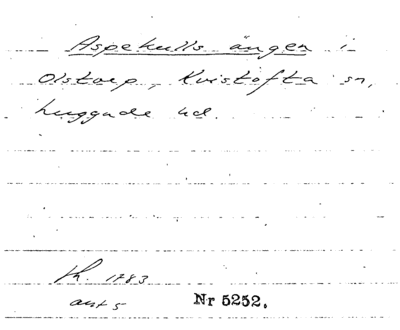 Aspekulls ängen i
Olstorp, Kvistofta sn,
huggade ved.
th. 1783
ant 5
Nr 5252.